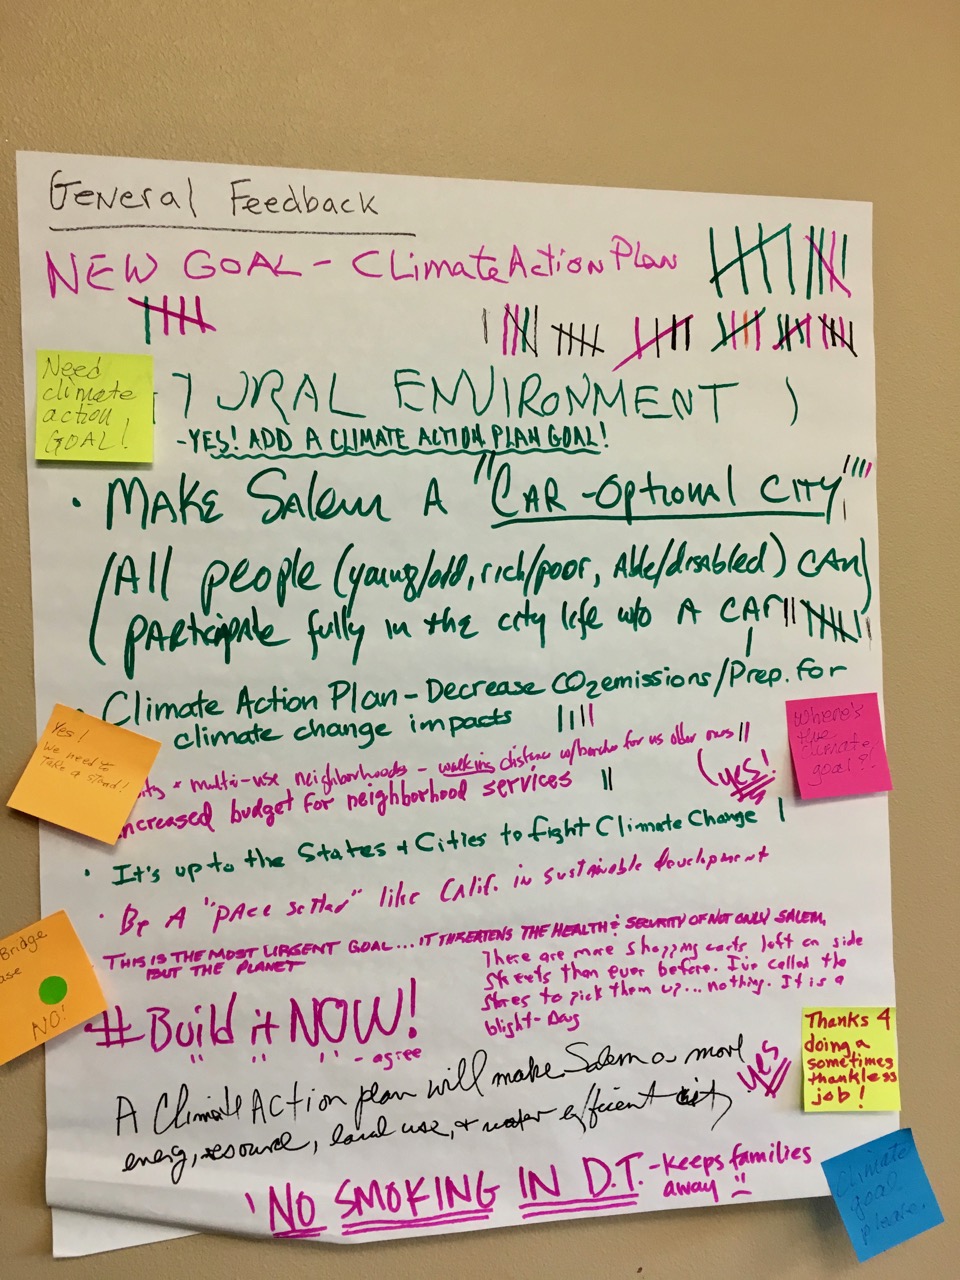 General Feedback
NEW GOAL - Climate Action Plan
Need
climate
action
GOAL!
URAL ENVIRONMENT )
- YES! ADD A CLIMATE ACTION PLAN GOAL!
• MAKE Salem A "CAR-Optional CITY"
(All people (young/old, rich/poor, Able/disabled) CAN
participate fully in the city life w/o A CAR)
Climate Action Plan - Decrease CO2 emissions / Prep. for
climate change impacts
Yes!
We need to
take a stand!
Where's
the
climate
goal?!
+ multi-use neighborhoods - walking distance for us older ones
(yes!
increased budget for neighborhood services
• It's up to the States + Cities to fight Climate Change
• Be A "pace setter" like Calif. in sustainable development
THIS IS THE MOST URGENT GOAL... IT THREATENS THE HEALTH & SECURITY OF NOT ONLY SALEM,
BUT THE PLANET
There are more shopping carts left on side
streets than ever before. I've called the
stores to pick them up... nothing. It is a
blight-
Bridge
NO!
#Build it NOW!
" " " - agree
Thanks 4
doing a
sometimes
thankless
job!
A Climate Action plan will make Salem a more
energ, resource, land use, + water efficient city
yes
NO SMOKING IN D.T. - keeps families
away
Climate
goal
please.